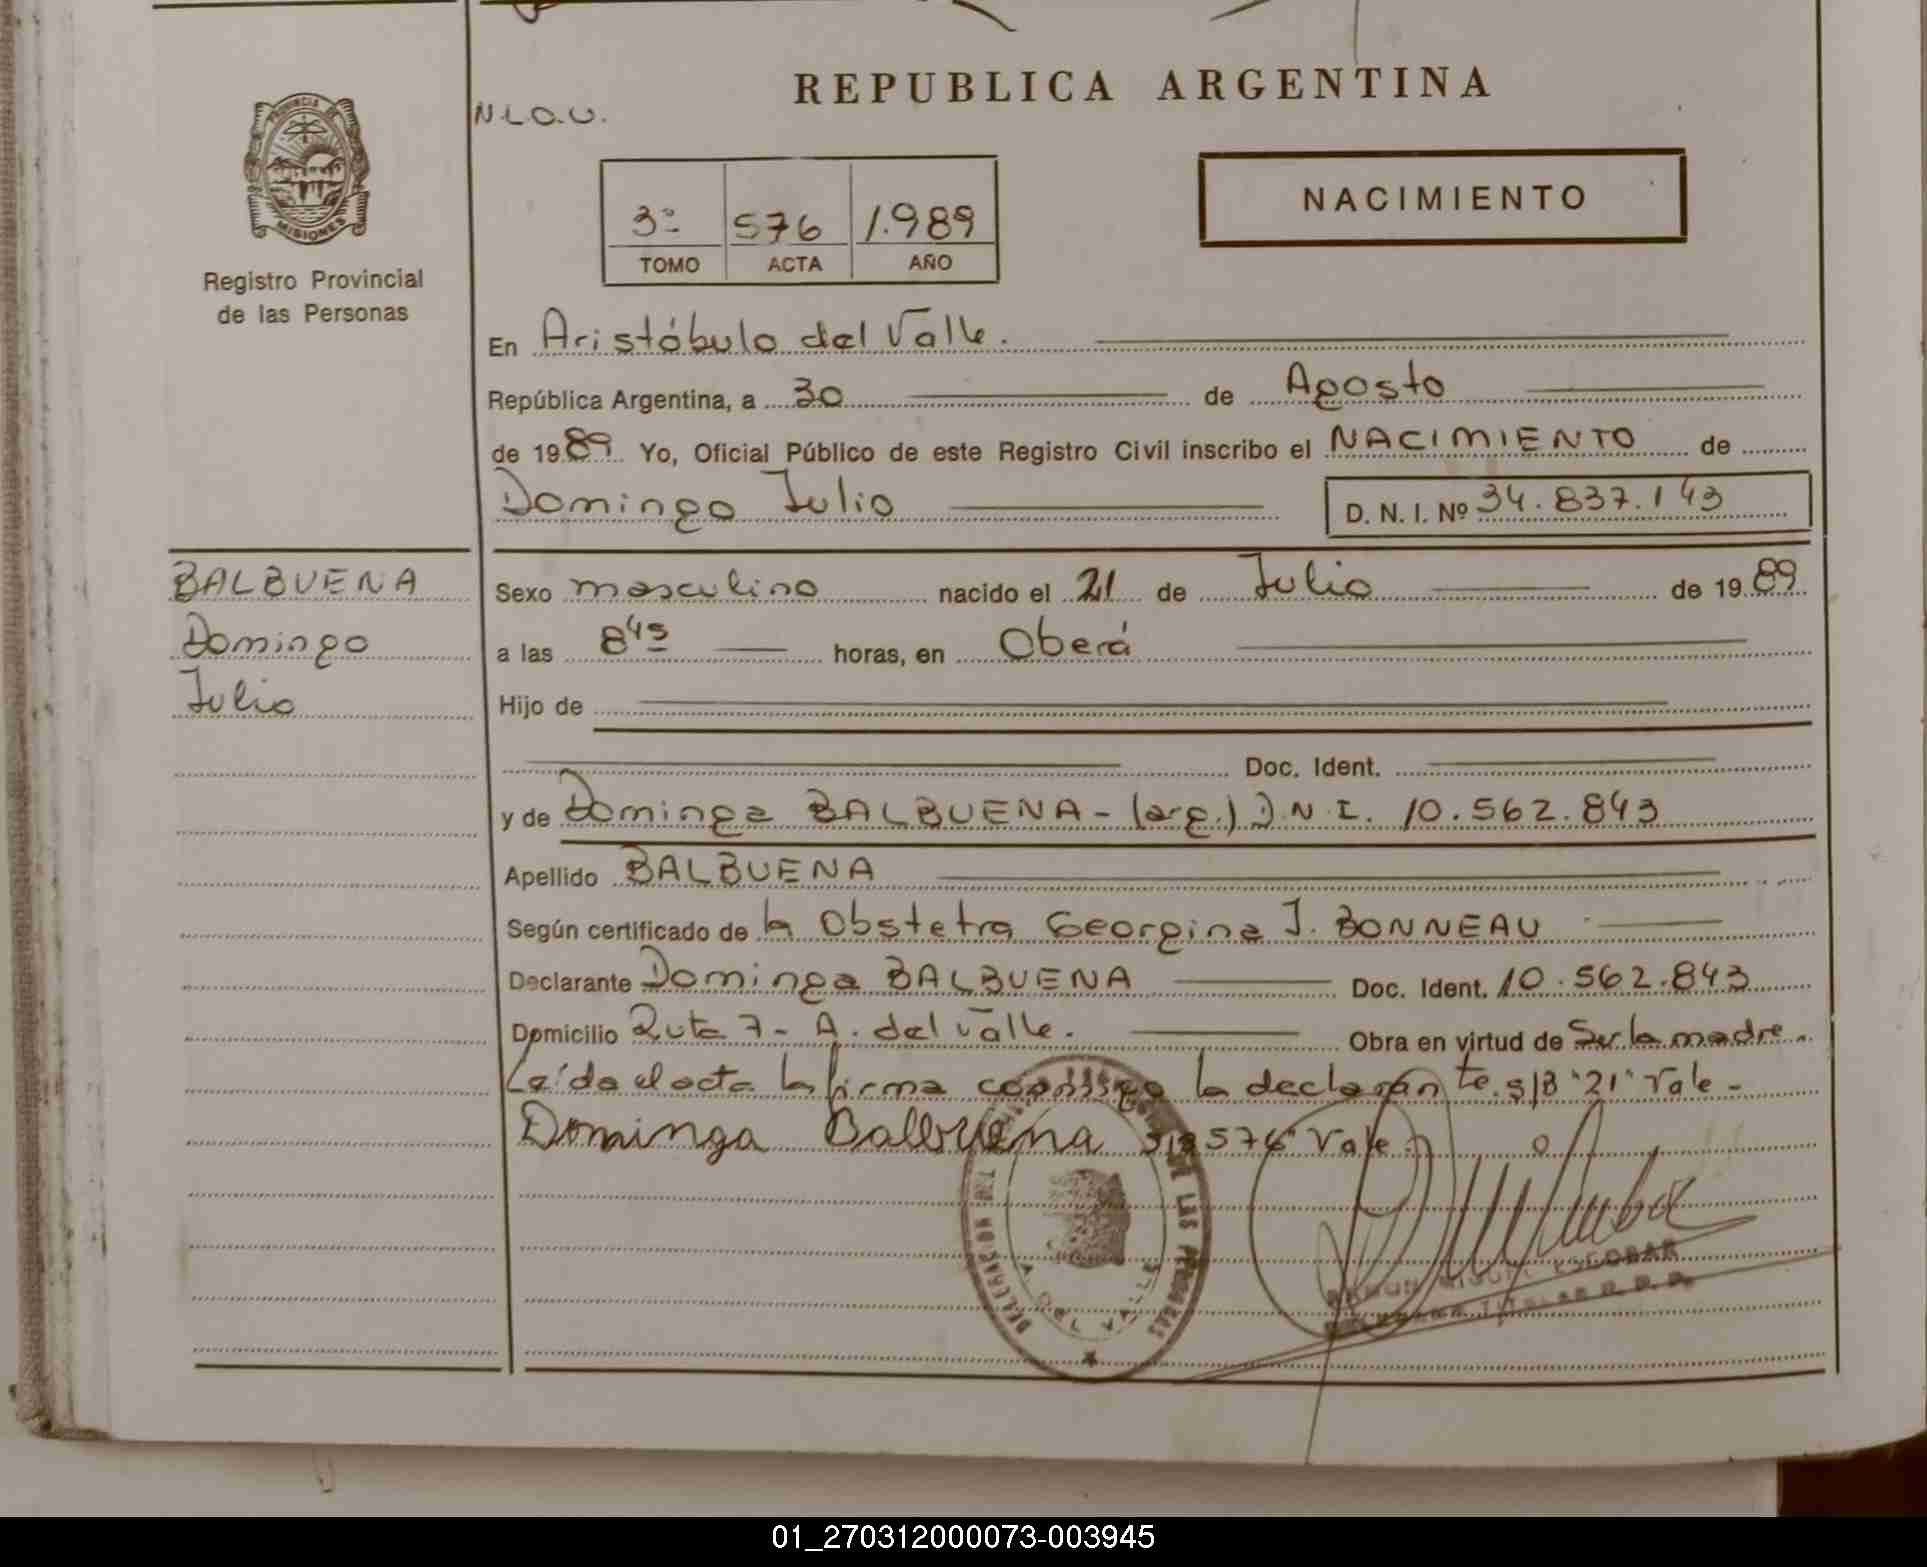 REPUBLICA ARGENTINA
N.L.O.U.
PROVINCIA DE
MISIONES
Registro Provincial
de las Personas
3º 576 1.989
TOMO ACTA AÑO
NACIMIENTO
En Aristóbulo del Valle.
República Argentina, a 30 de Agosto
de 1989 Yo, Oficial Público de este Registro Civil inscribo el NACIMIENTO de
Domingo Julio D. N. I. Nº 34.837.143
BALBUENA
Domingo
Julio
Sexo masculino nacido el 21 de Julio de 1989
a las 8 45 horas, en Oberá
Hijo de
Doc. Ident.
y de Dominga BALBUENA - (arg.) D.N.I. 10.562.843
Apellido BALBUENA
Según certificado de la Obstetra Georgina J. BONNEAU
Declarante Dominga BALBUENA Doc. Ident. 10.562.843
Domicilio Ruta 7 - A. del Valle. Obra en virtud de Ser la madre.
Leída el acta la firma conmigo la declarante. s/B "21" Vale -
Dominga Balbuena s/B 576 Vale.
DE LAS PERSONAS
DELEGACION
A. DEL VALLE
RAMON MIGUEL ESCOBAR
TITULAR R. P. P.
01_270312000073-003945